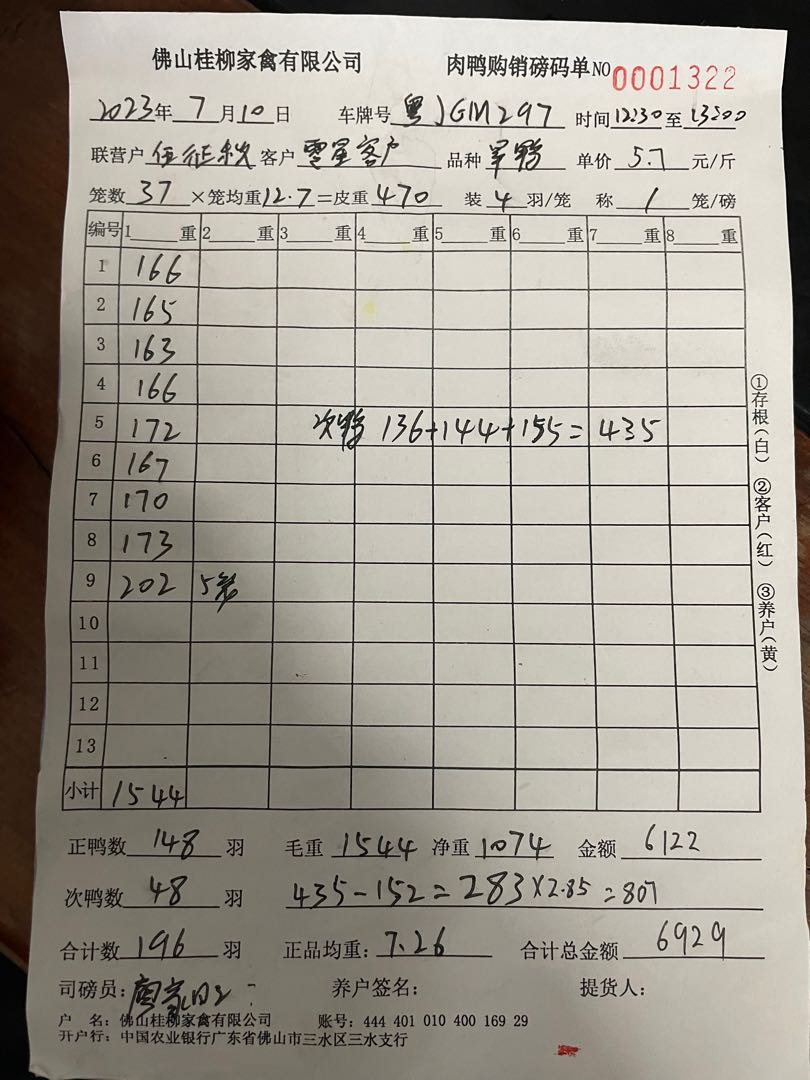 佛山桂柳家禽有限公司 肉鸭购销磅码单NO 0001322
2023年 7月10日 车牌号 粤JGM297 时间12:30至13:00
联营户 伍征秋 客户 零星客户 品种 旱鸭 单价 5.7 元/斤
笼数 37 ×笼均重12.7=皮重 470 装 4 羽/笼 称 1 笼/磅
编号 1 重 2 重 3 重 4 重 5 重 6 重 7 重 8 重
1 166
2 165
3 163
4 166
5 172 次鸭 136+144+155=435
6 167
7 170
8 173
9 202 5笼
10
11
12
13
小计 1544
正鸭数 148 羽 毛重 1544 净重 1074 金额 6122
次鸭数 48 羽 435-152=283×2.85=807
合计数 196 羽 正品均重: 7.26 合计总金额 6929
司磅员: 养户签名: 提货人:
户 名: 佛山桂柳家禽有限公司 账号: 444 401 010 400 169 29
开户行: 中国农业银行广东省佛山市三水区三水支行
①存根(白) ②客户(红) ③养户(黄)